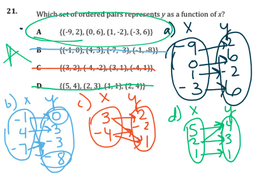 21. Which set of ordered pairs represents y as a function of x?
A {(-9, 2), (0, 6), (1, -2), (-3, 6)}
B {(-1, 0), (4, 3), (-7, -3), (-1, -8)}
C {(3, 2), (-4, -2), (3, 1), (-4, 1)}
D {(5, 4), (2, 3), (1, 1), (2, 4)}
A
a) x y
-9 2
0 6
1 -2
-3 6
b) x y
-1 0
4 3
-7 -3
-8
c) x y
3 2
-4 -2
1
d) x y
5 4
2 3
1 1